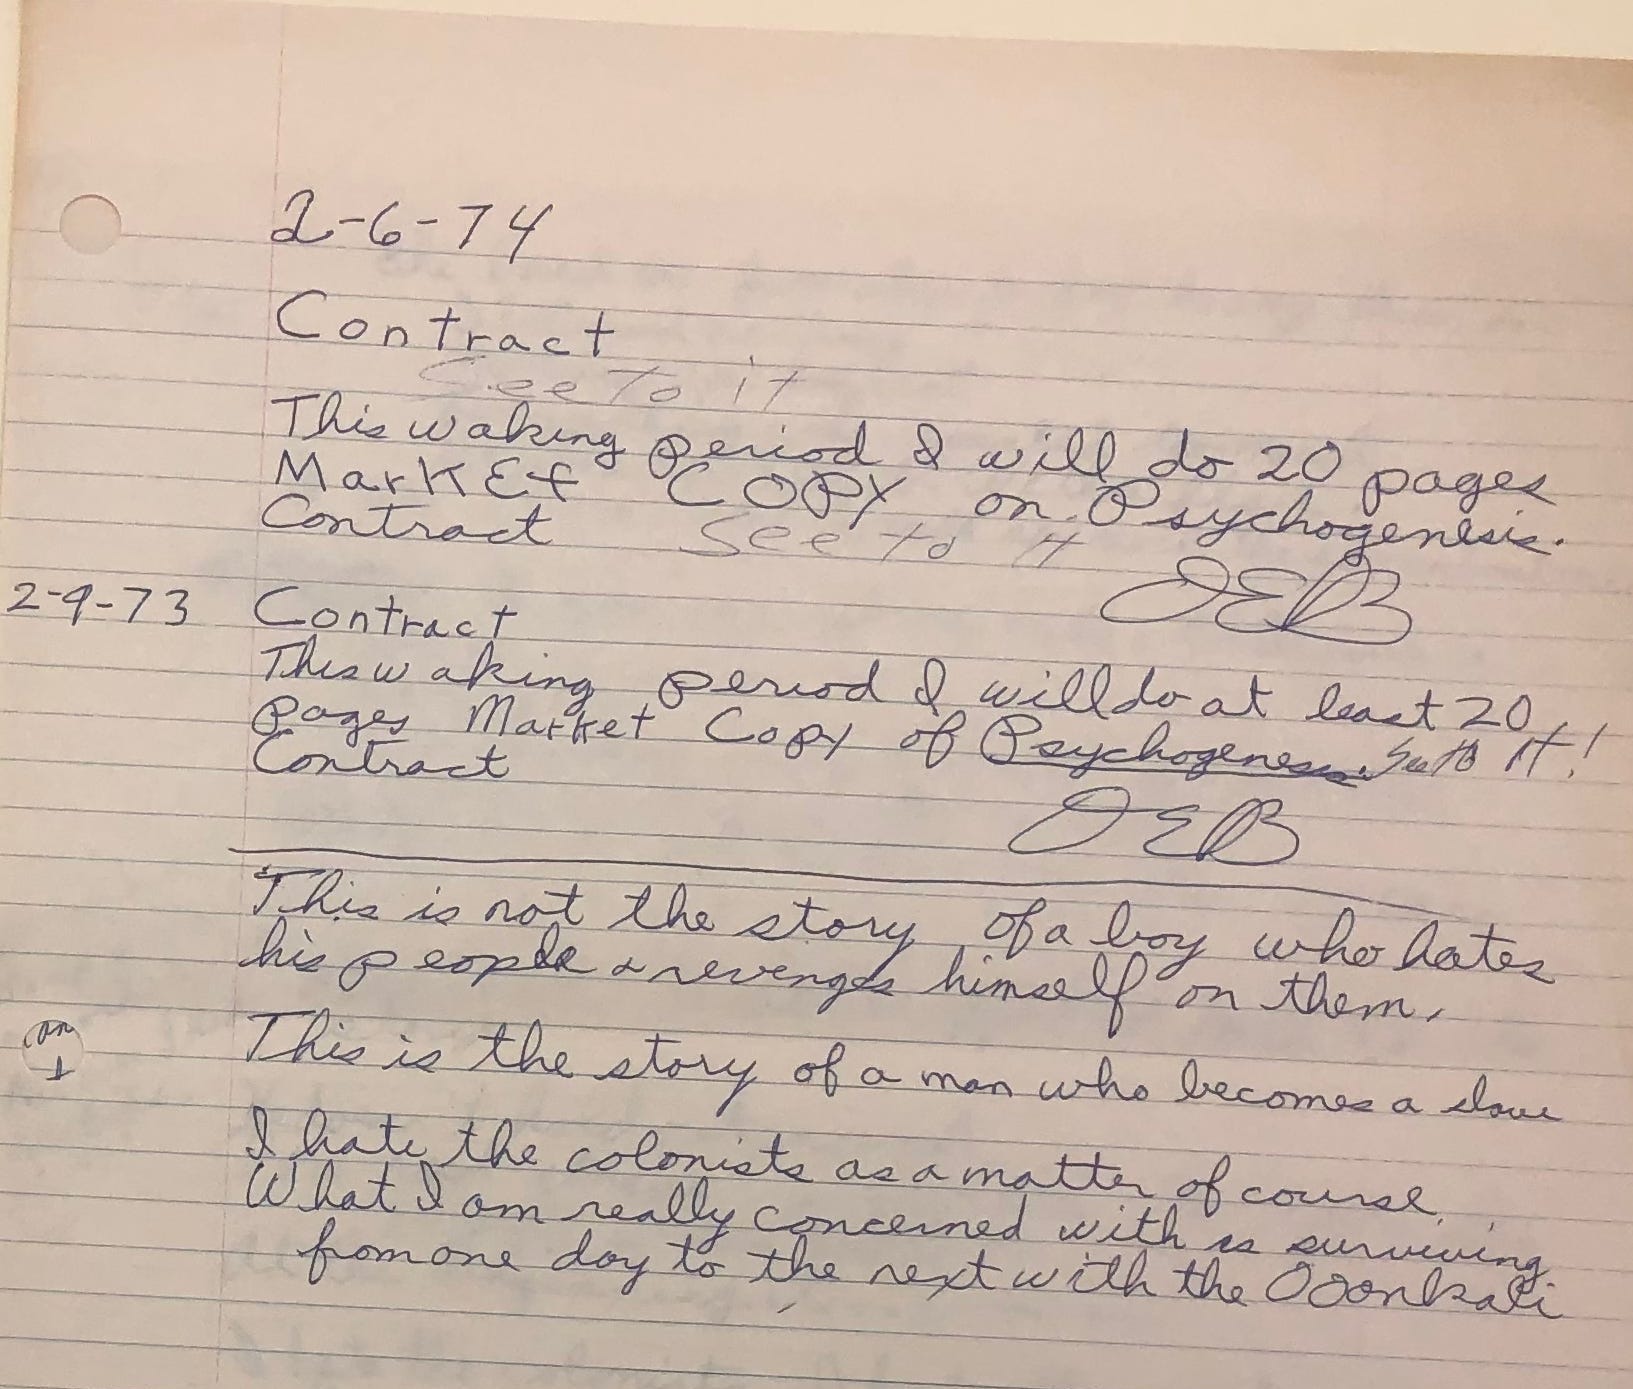 2-6-74
Contract
See to it
This waking period I will do 20 pages
MarkEt COPY on Psychogenesis.
Contract See to it
OEB
2-9-73 Contract
This waking period I will do at least 20
pages Market Copy of Psychogenesis. See to it!
Contract
OEB
This is not the story of a boy who hates
his people & revenges himself on them.
This is the story of a man who becomes a slave
I hate the colonists as a matter of course.
What I am really concerned with is surviving
from one day to the next with the Ooonkali